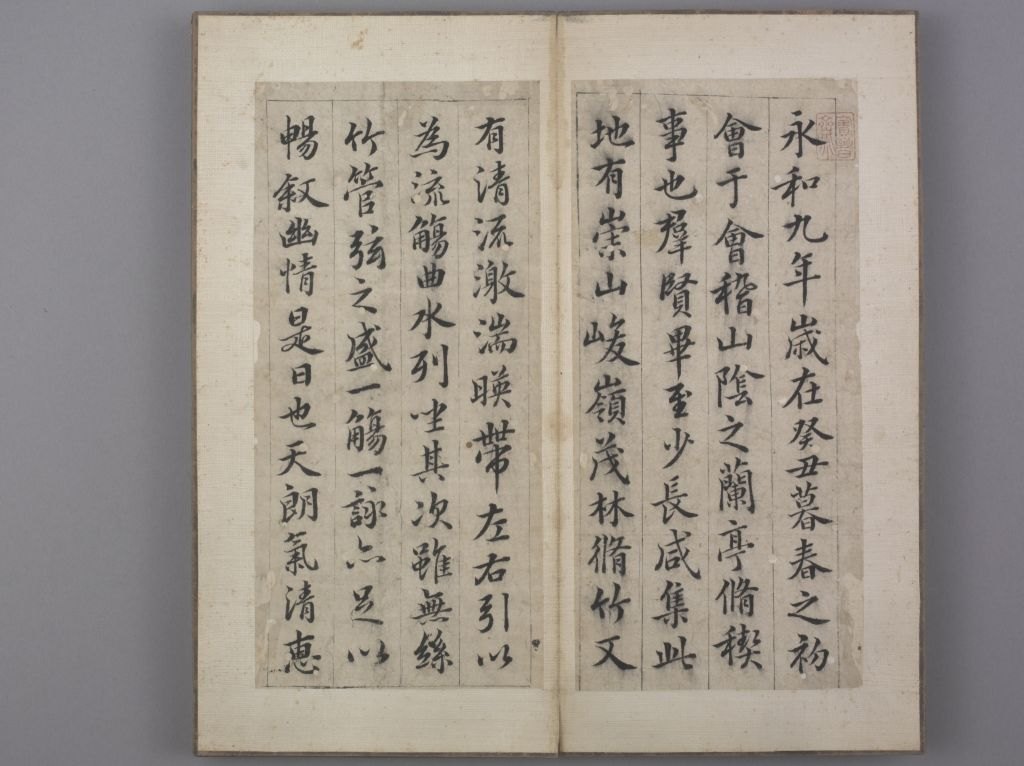 永和九年歲在癸丑暮春之初
會于會稽山陰之蘭亭脩稧
事也羣賢畢至少長咸集此
地有崇山峻嶺茂林脩竹又
有清流激湍暎帶左右引以
為流觴曲水列坐其次雖無絲
竹管弦之盛一觴一詠亦足以
暢敘幽情是日也天朗氣清惠